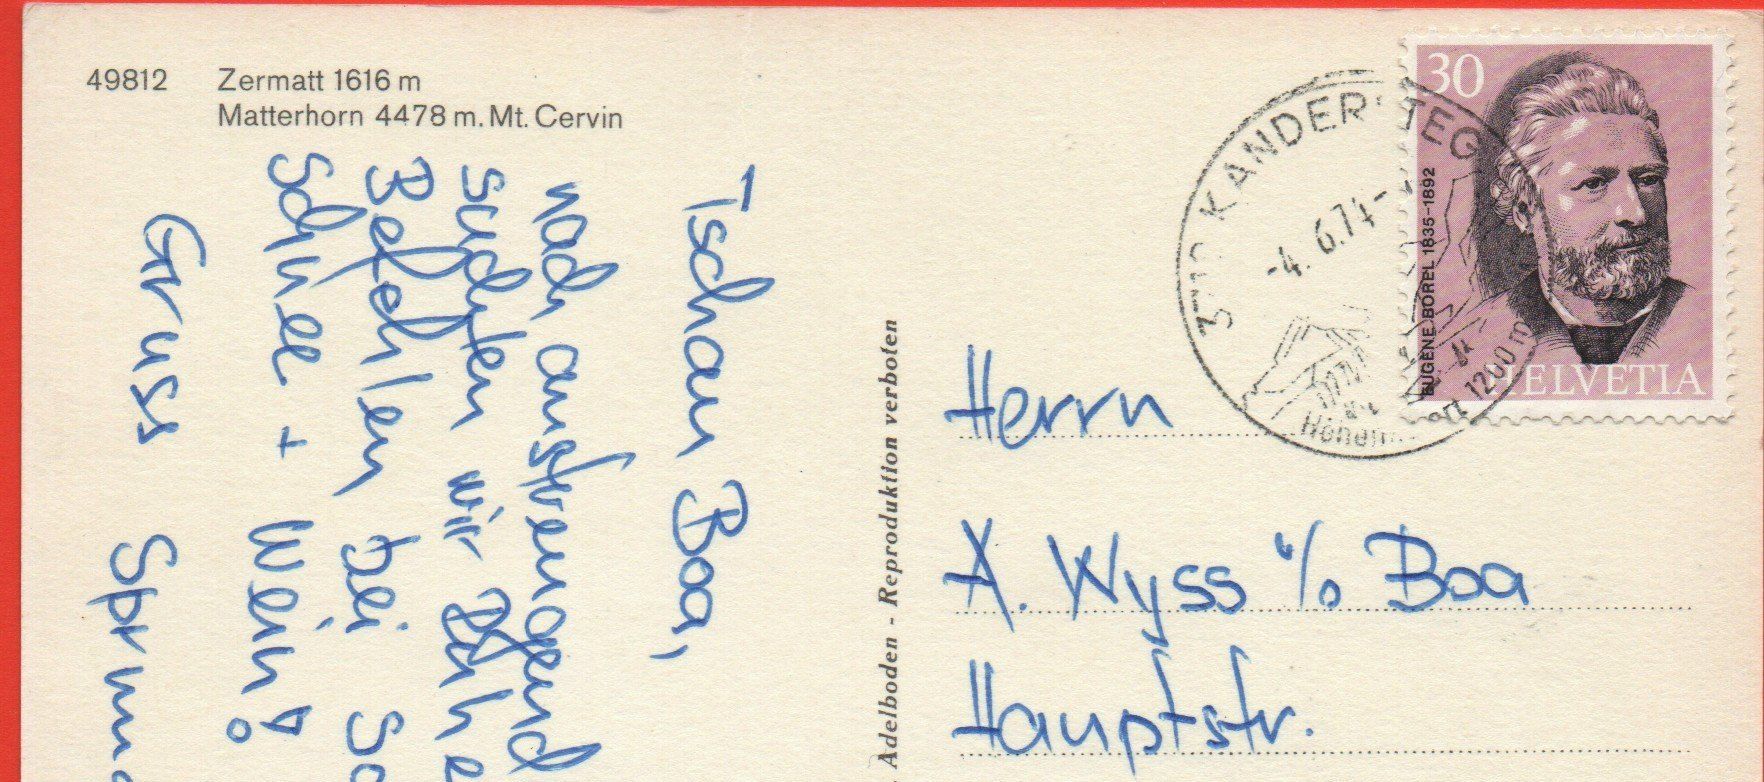 49812 Zermatt 1616 m
Matterhorn 4478 m. Mt. Cervin
Tschau Boa,
nach anstrengend
suchten wir
bei
Schnee + Wein!
Gruss
Adelboden - Reproduktion verboten
KANDERSTEG
-4. 6.74-
1200 m
30
EUGENE BOREL 1835-1892
HELVETIA
Herrn
A. Wyss c/o Boa
Hauptstr.